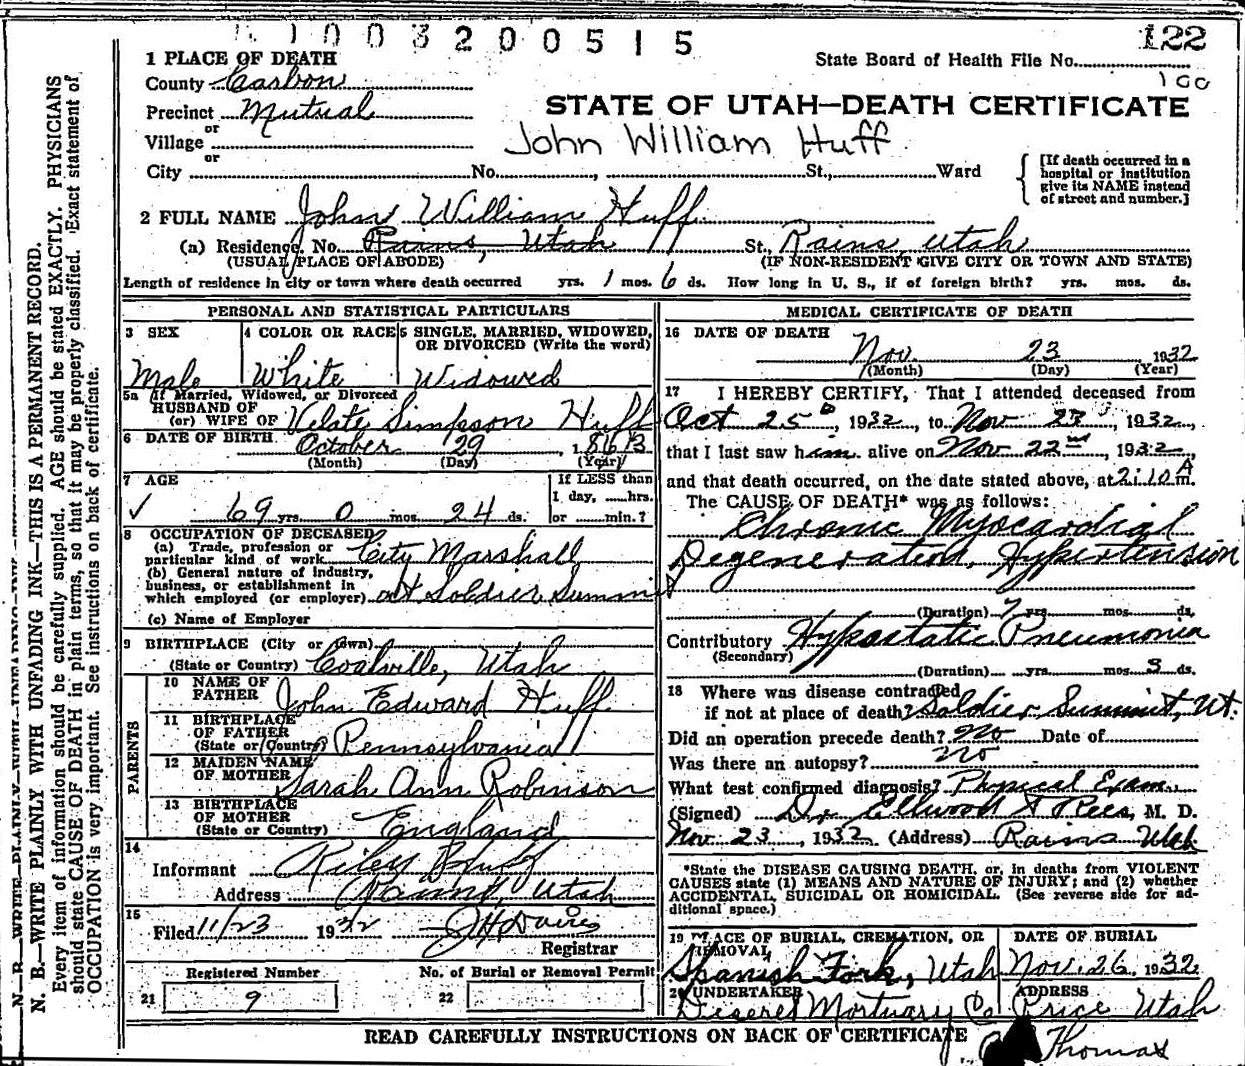 1003200515
122
State Board of Health File No.
100
1 PLACE OF DEATH
County Carbon
Precinct Mutual
or
Village
or
City No. , St., Ward
STATE OF UTAH—DEATH CERTIFICATE
John William Huff
[If death occurred in a
hospital or institution
give its NAME instead
of street and number.]
2 FULL NAME John William Huff
(a) Residence, No. Rains, Utah St., Rains, Utah
(USUAL PLACE OF ABODE) (IF NON-RESIDENT GIVE CITY OR TOWN AND STATE)
Length of residence in city or town where death occurred yrs. 1 mos. 6 ds. How long in U. S., if of foreign birth? yrs. mos. ds.
PERSONAL AND STATISTICAL PARTICULARS
3 SEX
Male
4 COLOR OR RACE
White
5 SINGLE, MARRIED, WIDOWED,
OR DIVORCED (Write the word)
Widowed
5a If Married, Widowed, or Divorced
HUSBAND OF
(or) WIFE OF Velate Simpson Huff
6 DATE OF BIRTH October 29, 1863
(Month) (Day) (Year)
7 AGE
69 yrs. 0 mos. 24 ds.
If LESS than
1 day, ......hrs.
or ......min.?
8 OCCUPATION OF DECEASED
(a) Trade, profession or
particular kind of work City Marshall
(b) General nature of industry,
business, or establishment in
which employed (or employer) at Soldier Summit
(c) Name of Employer
9 BIRTHPLACE (City or town)
(State or Country) Coalville, Utah
PARENTS
10 NAME OF
FATHER John Edward Huff
11 BIRTHPLACE
OF FATHER
(State or Country) Pennsylvania
12 MAIDEN NAME
OF MOTHER Sarah Ann Robinson
13 BIRTHPLACE
OF MOTHER
(State or Country) England
14
Informant Riley Huff
Address Rains, Utah
15
Filed 11/23 1932 J H Davis
Registrar
Registered Number
21 9
No. of Burial or Removal Permit
22
MEDICAL CERTIFICATE OF DEATH
16 DATE OF DEATH
Nov. 23 1932
(Month) (Day) (Year)
17 I HEREBY CERTIFY, That I attended deceased from
Oct 25, 1932, to Nov 23, 1932,
that I last saw him alive on Nov 22nd, 1932,
and that death occurred, on the date stated above, at 2:10 A m.
The CAUSE OF DEATH* was as follows:
Chronic Myocardial
Degeneration, Hypertension
(Duration) 7 yrs. mos. ds.
Contributory Hypostatic Pneumonia
(Secondary)
(Duration) yrs. mos. 3 ds.
18 Where was disease contracted
if not at place of death? Soldier Summit, Ut.
Did an operation precede death? no Date of
Was there an autopsy? no
What test confirmed diagnosis? Physical Exam.
(Signed) Dr. Ellwood Rees, M. D.
Nov. 23, 1932 (Address) Rains Utah
*State the DISEASE CAUSING DEATH, or, in deaths from VIOLENT
CAUSES state (1) MEANS AND NATURE OF INJURY; and (2) whether
ACCIDENTAL, SUICIDAL OR HOMICIDAL. (See reverse side for ad-
ditional space.)
19 PLACE OF BURIAL, CREMATION, OR
REMOVAL
Spanish Fork, Utah
DATE OF BURIAL
Nov. 26, 1932
20 UNDERTAKER
Deseret Mortuary Co
ADDRESS
Price Utah
READ CAREFULLY INSTRUCTIONS ON BACK OF CERTIFICATE
Thomas
N. B.—WRITE PLAINLY WITH UNFADING INK—THIS IS A PERMANENT RECORD.
Every item of information should be carefully supplied. AGE should be stated EXACTLY. PHYSICIANS
should state CAUSE OF DEATH in plain terms, so that it may be properly classified. Exact statement of
OCCUPATION is very important. See instructions on back of certificate.